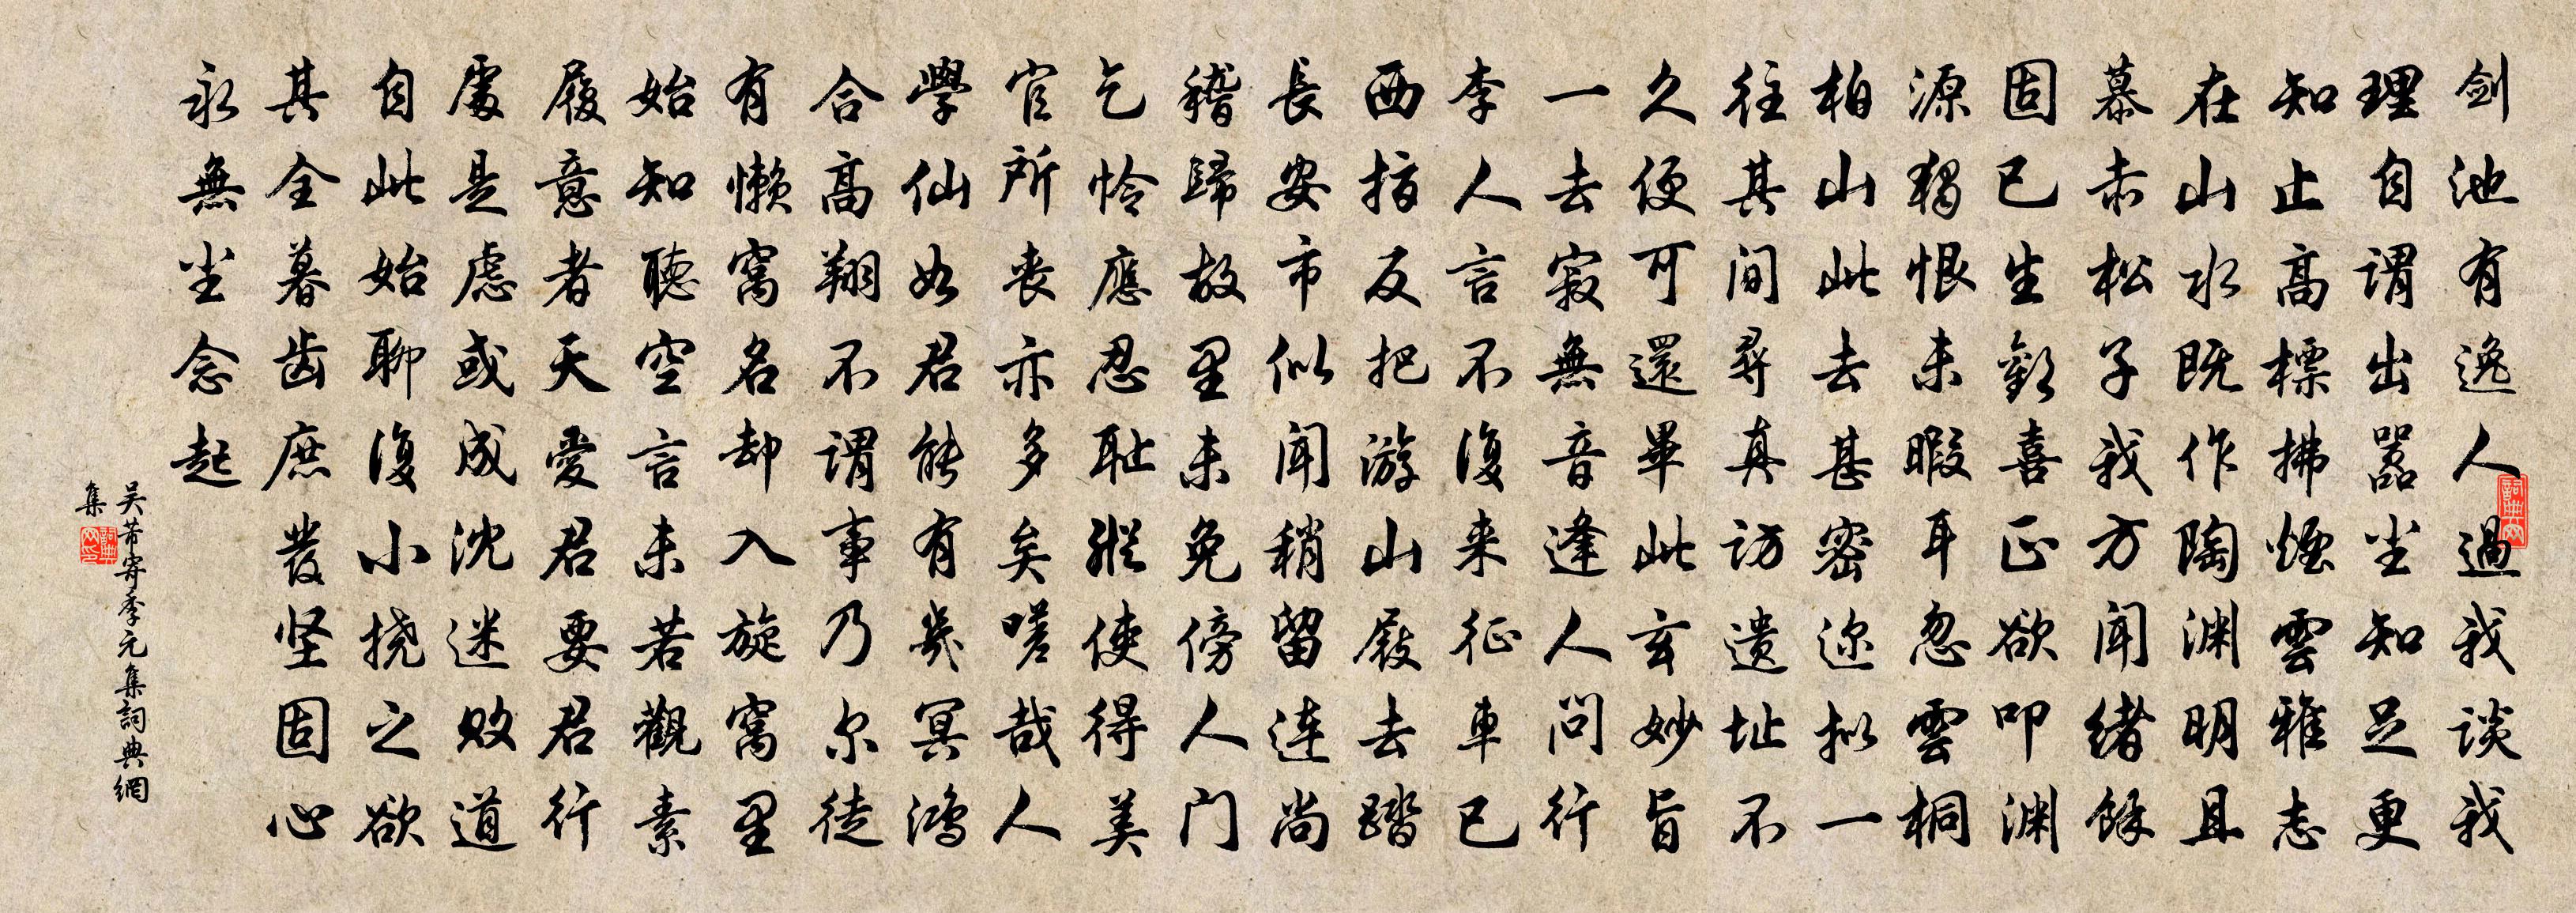 剑池有逸人過我谈我
理自谓出嚣尘知足更
知止高標拂煙雲雅志
在山水既作陶渊明且
慕赤松子我方闻绪餘
固已生歡喜正欲叩渊
源独恨未暇耳忽雲桐
柏山此去甚密迩拟一
往其间尋真访遗址不
久便可還畢此玄妙旨
一去寂無音逢人问行
李人言不復来征車已
西指反把游山屐去踏
長安市似闻稍留连尚
稽歸故里未免傍人门
乞怜應忍耻縱使得美
官所丧亦多矣嗟哉人
學仙如君能有幾冥鴻
合高翔不谓事乃尔徒
有懒窩名却入旋窩里
始知聽空言未若觀素
履意者天愛君要君行
處是虑或成沈迷败道
自此始聊復小挠之欲
其全暮齿庶發坚固心
永無尘念起
吴芾寄季元集詞典網
集